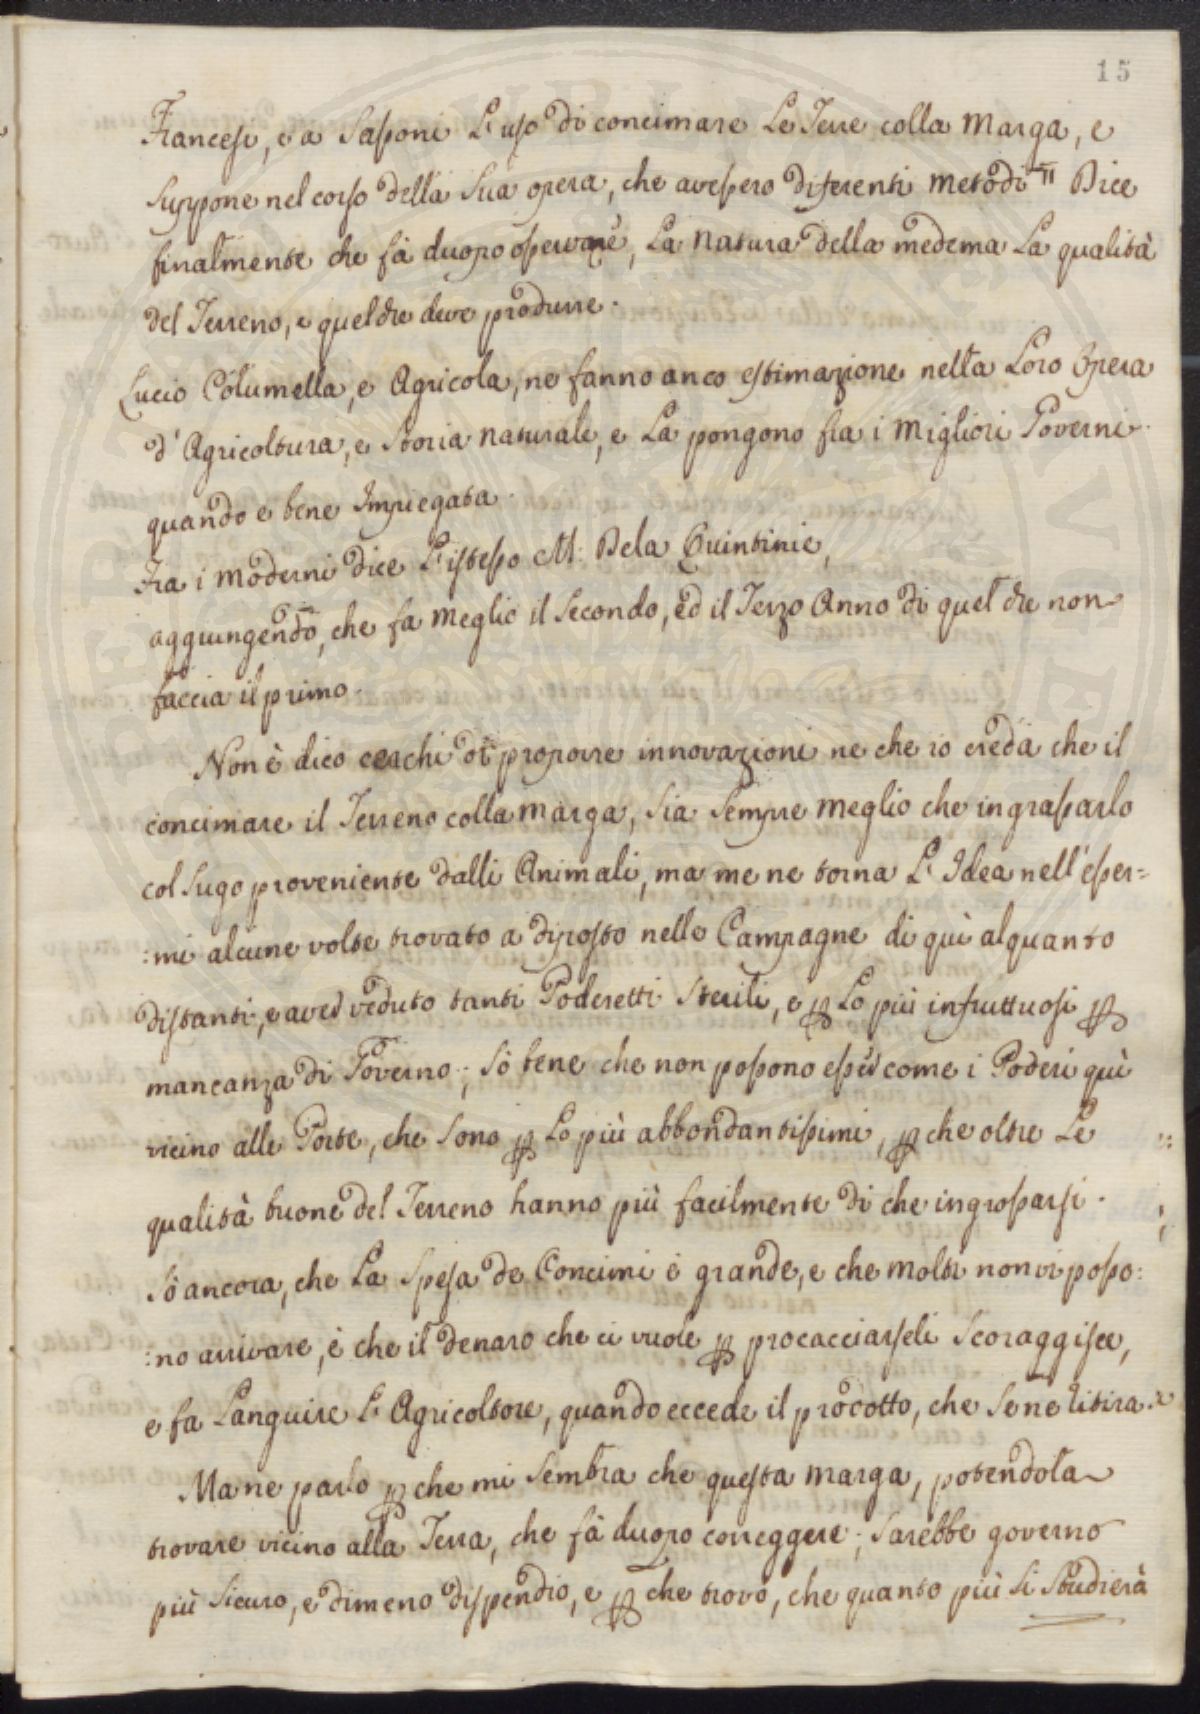 15
Francesi, e a Sassoni L'uso di concimare Le Terre colla Marga, e
suppone nel corso della Sua opera, che avessero diferenti Metodi = Dice
finalmente che fà duopo osservare, La Natura della medema La qualità
del Terreno, e quel che deve produrre.
Lucio Columella, e Agricola, ne fanno anco estimazione nella Loro Opera
d'Agricoltura, e Storia naturale, e La pongono fra i Migliori Governi
quando e bene Impiegata.
Fra i moderni dice L'istesso M: Dela Quintinie,
aggiungendo, che fa meglio il Secondo, ed il Terzo Anno di quel che non
faccia il primo.
Non è dico cerchi di proporre innovazioni ne che io creda che il
concimare il Terreno colla marga, sia sempre meglio che ingrassarlo
col Sugo proveniente dalli Animali, ma me ne torna L'Idea nell'esser=
:mi alcune volte trovato a diposto nelle Campagne di quì alquanto
distanti, e aver veduto tanti Poderetti Sterili, e p Lo più infruttuosi p
mancanza di Governo; Sò bene che non possono esser come i Poderi quì
vicino alle Porte, che sono p Lo più abbondantissimi, p che oltre Le
qualità buone del Terreno hanno più facilmente di che ingrossarsi.
Sò ancora, che La Spesa de Concimi è grande, e che molti non vi posso:
:no arrivare, è che il denaro che ci vuole p procacciarseli Scoraggisce,
e fa Languire L'Agricoltore, quando eccede il prodotto, che Se ne ritira.
Ma ne parlo p che mi Sembra che questa marga, potendola
trovare vicino alla Terra, che fà duopo correggere; Sarebbe governo
più Sicuro, e dimeno dispendio, e p che trovo, che quanto più Si Studierà